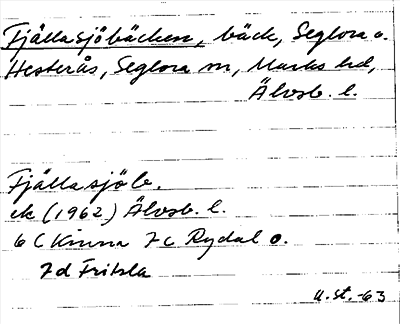 Fjällasjöbäcken, bäck, Seglora o.
Hesterås, Seglora sn, Marks hd,
Älvsb. l.
Fjällasjöb.
ek (1962) Älvsb. l.
6 C Kinna 7c Rydal o.
7d Fritsla
u. st. -63